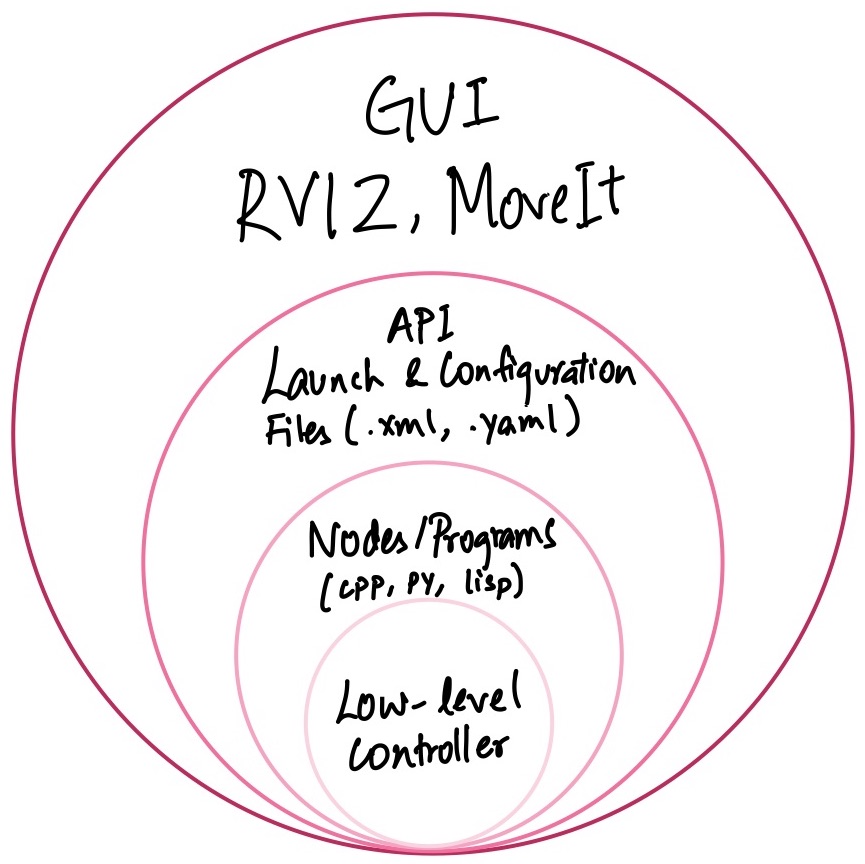 GUI
RVIZ, MoveIt
API
Launch & Configuration
Files (.xml, .yaml)
Nodes/Programs
(cpp, py, lisp)
Low-level
Controller